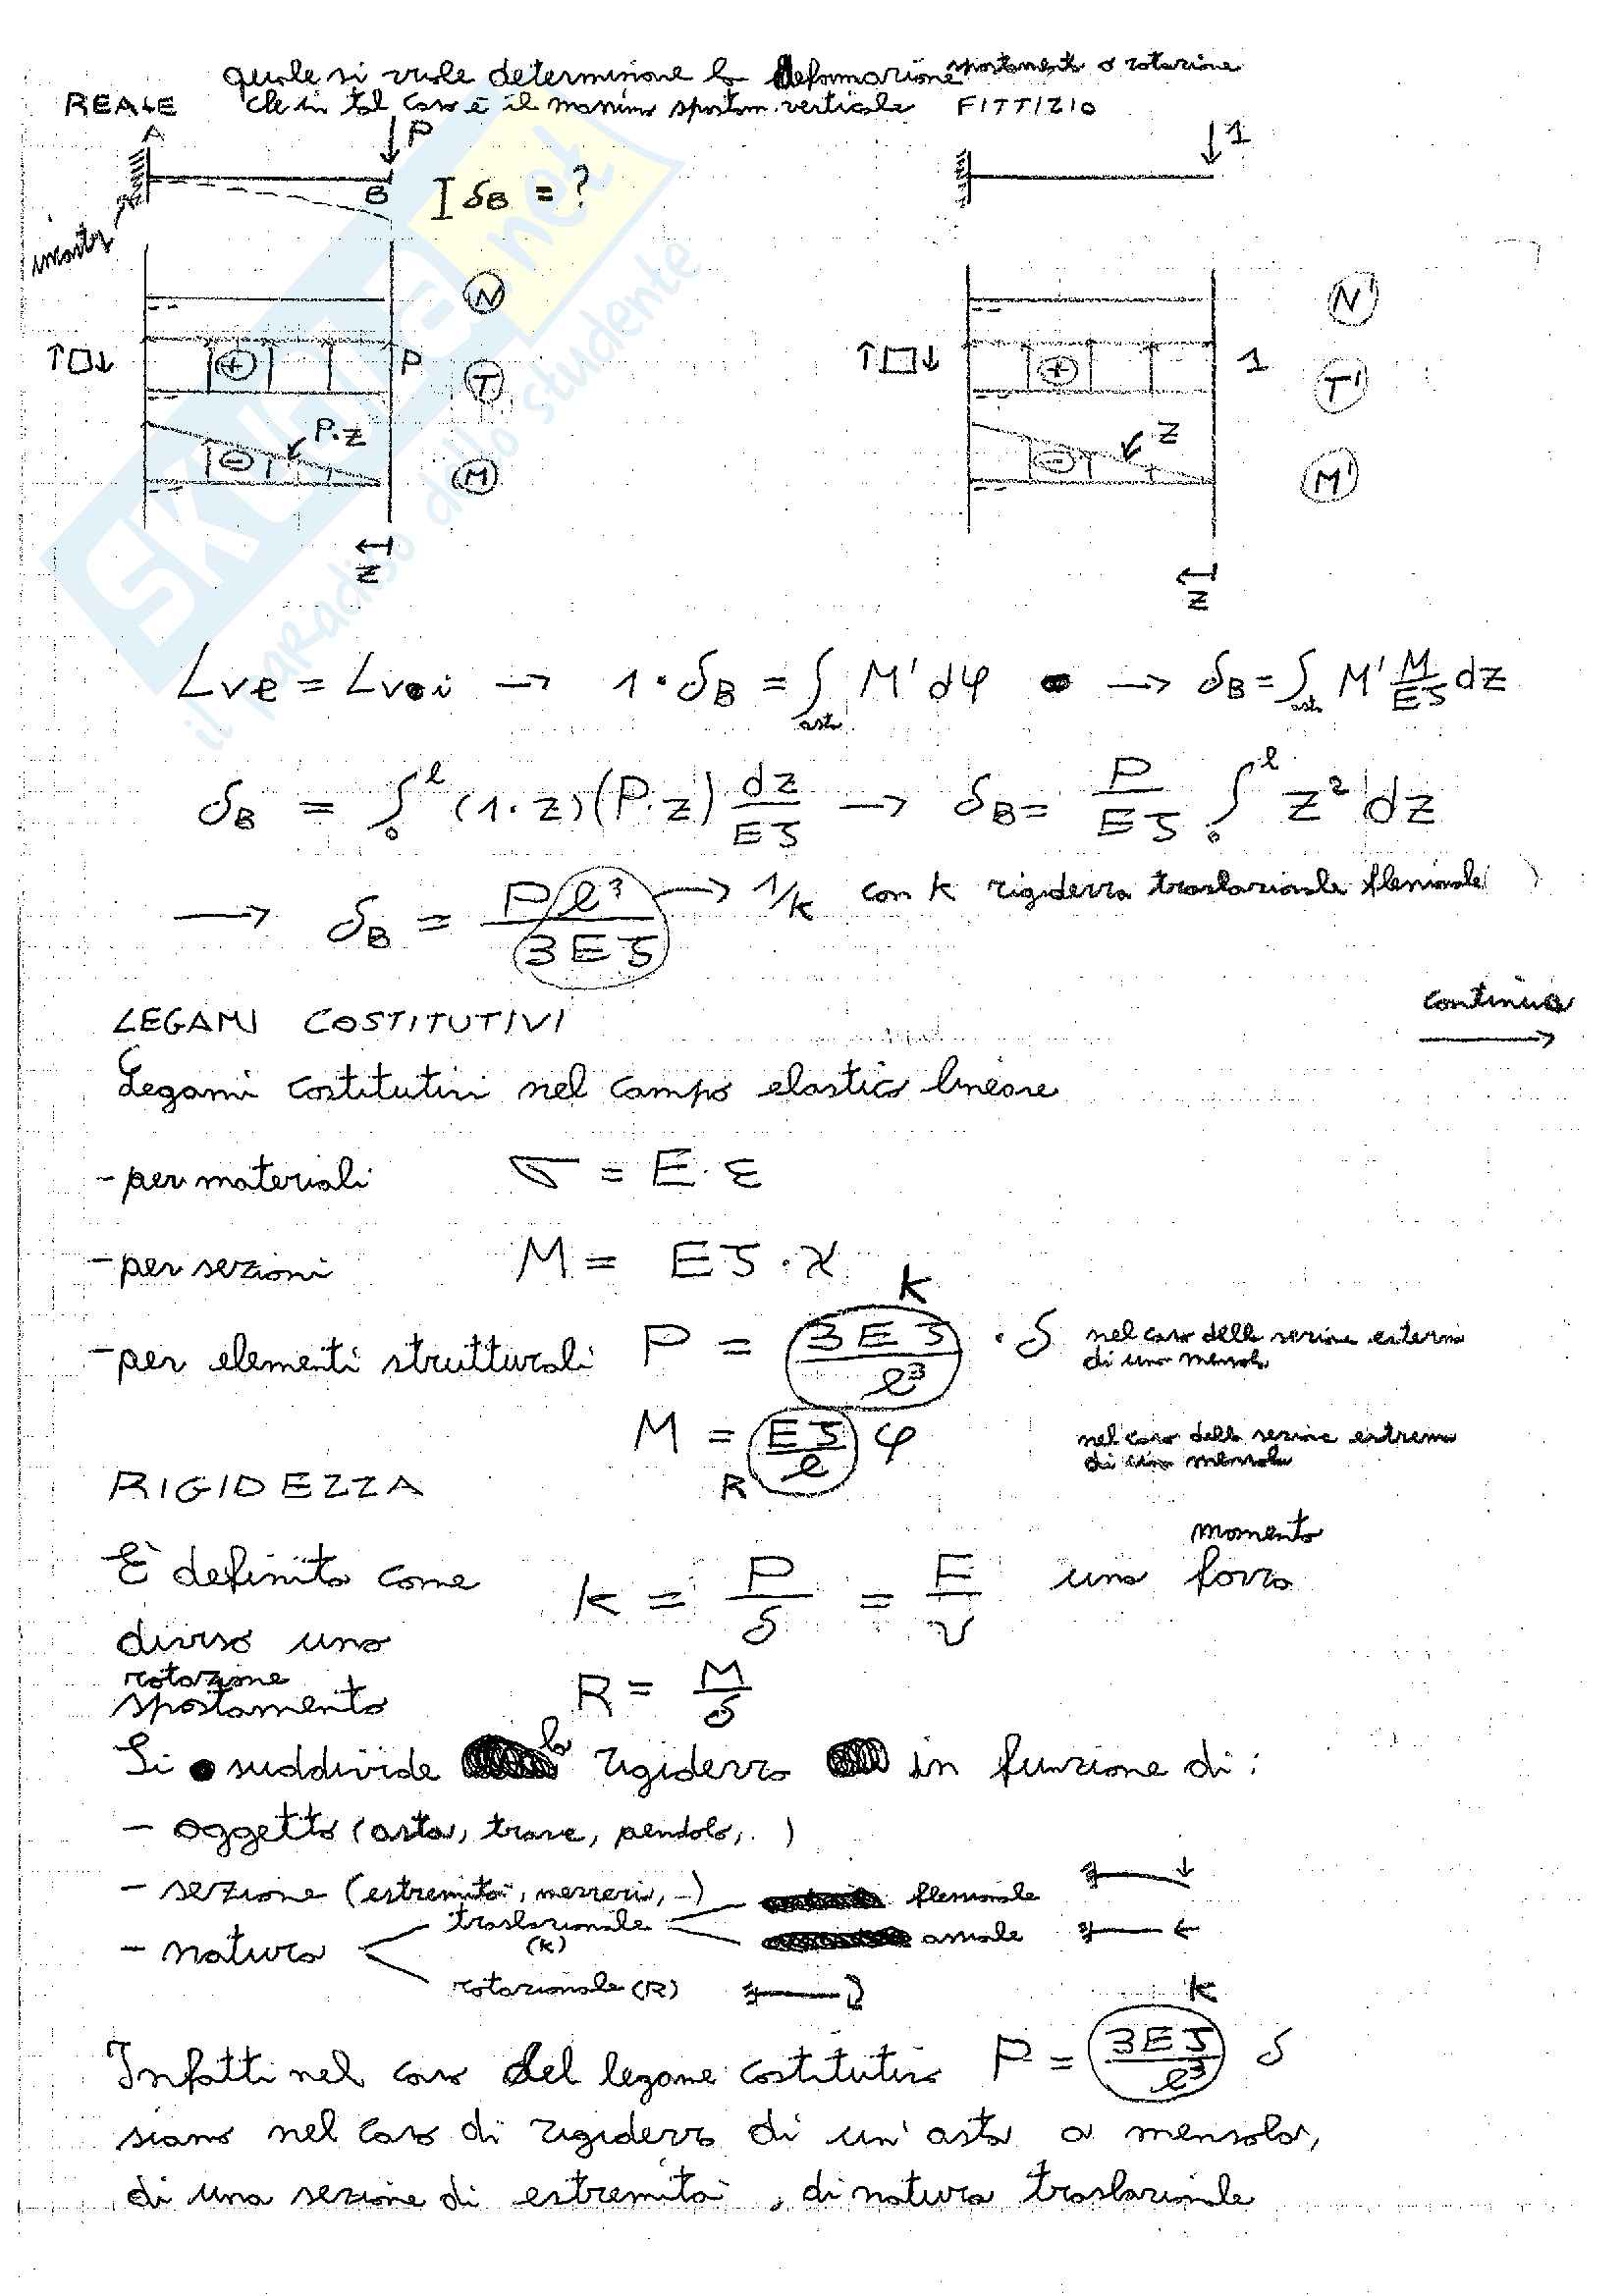 quale si vuole determinare la deformazione spostamento o rotazione
REALE che in tal caso è il massimo spostam. verticale FITTIZIO
A P 1
B δB = ?
incastro
N N'
P T 1 T'
P·z M z M'
z z
Lve = Lvi → 1·δB = ∫asta M' dφ → δB = ∫asta M' M/EJ dz
δB = ∫₀ˡ (1·z)(P·z) dz/EJ → δB = P/EJ ∫₀ˡ z² dz
→ δB = Pl³/3EJ → 1/k con k rigidezza traslazionale flessionale
LEGAMI COSTITUTIVI
continua
Legami costitutivi nel campo elastico lineare
- per materiali σ = E·ε
- per sezioni M = EJ·χ
k
- per elementi strutturali P = 3EJ/l³ ·δ nel caso della sezione esterna
di una mensola
M = EJ/l φ nel caso della sezione estrema
di una mensola
R
RIGIDEZZA
momento
È definita come k = P/δ = F/v una forza
diviso uno
rotazione
spostamento R = M/δ
Si suddivide la rigidezza in funzione di:
- oggetto (asta, trave, pendolo, ..)
- sezione (estremità, mezzeria, -) flessionale
- natura traslazionale (k) assiale
rotazionale (R)
k
Infatti nel caso del legame costitutivo P = 3EJ/l³ δ
siamo nel caso di rigidezza di un'asta a mensola,
di una sezione di estremità, di natura traslazionale
SKUOLA.net
il paradiso dello studente